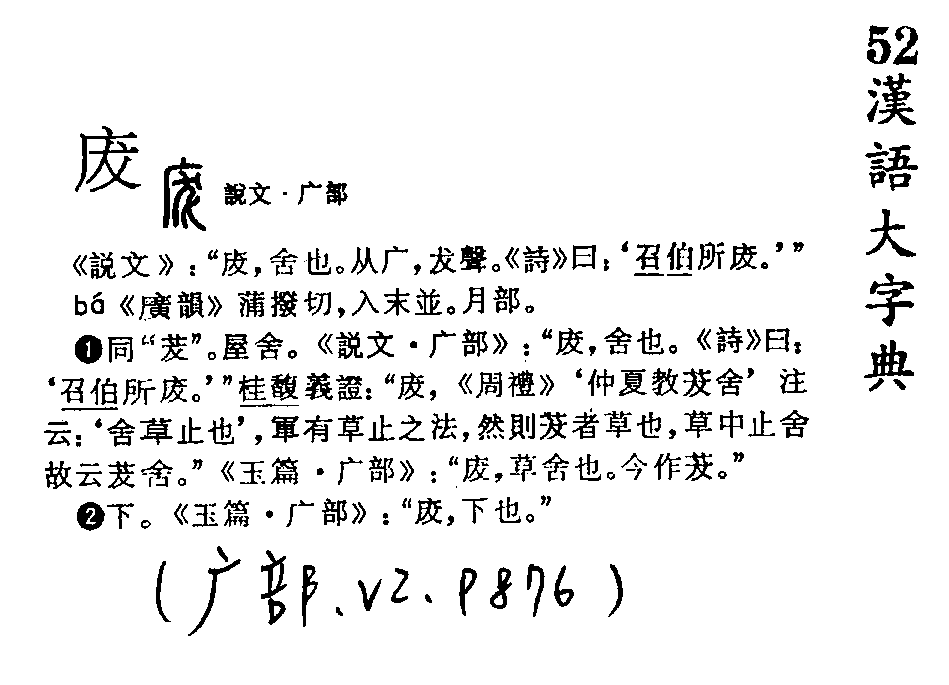 52
漢語大字典
庡 說文·广部
《説文》：“废，舍也。从广，犮聲。《詩》曰：‘召伯所废。’”
bá《廣韻》蒲撥切，入末並。月部。
❶同“茇”。屋舍。《説文·广部》：“废，舍也。《詩》曰：
‘召伯所废。’”桂馥義證：“废，《周禮》‘仲夏教茇舍’注
云：‘舍草止也’，軍有草止之法，然則茇者草也，草中止舍
故云茇舍。”《玉篇·广部》：“废，草舍也。今作茇。”
❷下。《玉篇·广部》：“废，下也。”
（广部、V2、P876）